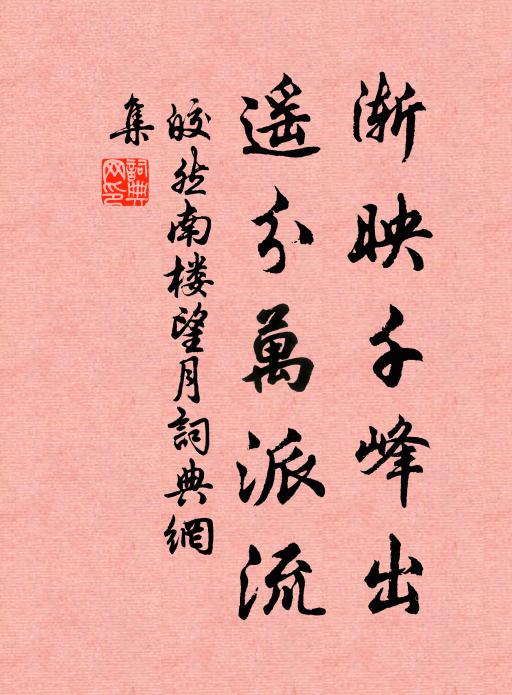 漸映千峰出
遥分萬派流
皎然南楼望月詞典網
集
詞典網印